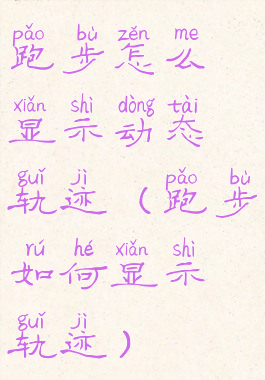 pǎo bù zěn me
跑步怎么
xiǎn shì dòng tài
显示动态
guǐ jì pǎo bù
轨迹（跑步
rú hé xiǎn shì
如何显示
guǐ jì
轨迹）